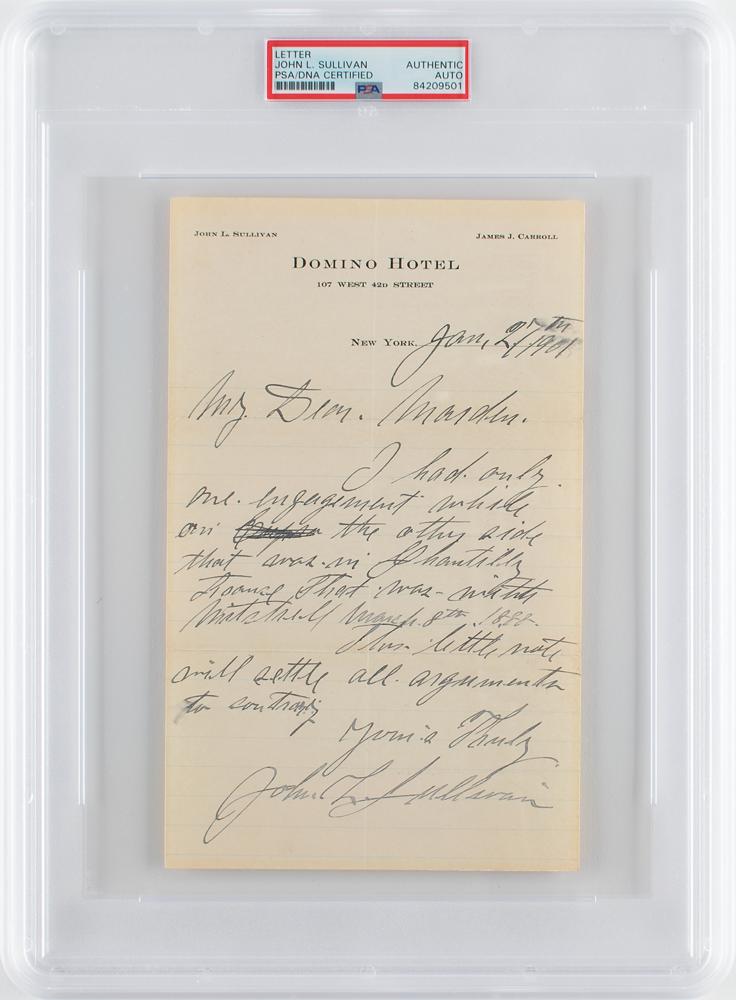 LETTER
JOHN L. SULLIVAN
PSA/DNA CERTIFIED
AUTHENTIC
AUTO
84209501
PSA
JOHN L. SULLIVAN
JAMES J. CARROLL
DOMINO HOTEL
107 WEST 42D STREET
NEW YORK. Jan, 27th 1901
My. Dear. Marsden.
I had. only.
one. engagement while
on the othe side
that was. in Chantilly
France, That. was. with
Mitchell March. 8th. 1888.
This. little note
will settle all. arguments
to contrary
Your's Truly
John. L. Sullivan